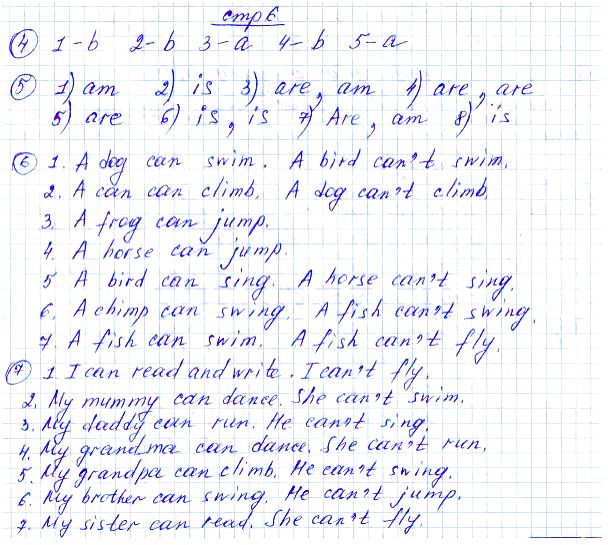 стр 6
4 1-b 2-b 3-a 4-b 5-a
5 1) am 2) is 3) are, am 4) are, are
5) are 6) is, is 7) Are, am 8) is
6 1. A dog can swim. A bird can't swim.
2. A can can climb. A dog can't climb.
3. A frog can jump.
4. A horse can jump.
5 A bird can sing. A horse can't sing.
6. A chimp can swing. A fish can't swing.
7. A fish can swim. A fish can't fly.
7 1. I can read and write. I can't fly.
2. My mummy can dance. She can't swim.
3. My daddy can run. He can't sing.
4. My grandma can dance. She can't run.
5. My grandpa can climb. He can't swing.
6. My brother can swing. He can't jump.
7. My sister can read. She can't fly.